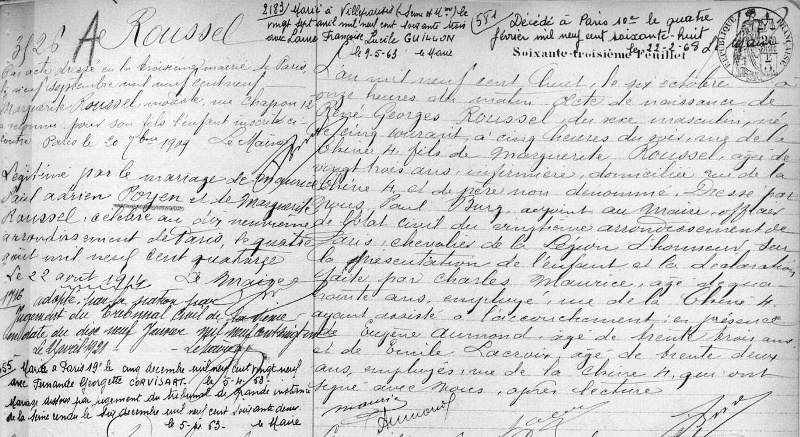 3526
A
Roussel
Par acte dressé en la troisième mairie de Paris,
le neuf septembre mil neuf cent neuf
Marguerite Roussel, modiste, rue Chapon 12
a reconnu pour son fils l'enfant inscrit ci-
contre Paris le 20 7bre 1909 Le Maire
Légitimé par le mariage de Maurice
Paul Adrien Poyen et de Marguerite
Roussel, célébré au dix neuvième
arrondissement de Paris, le quatre
août mil neuf cent quatorze
Le 22 août 1914 Le Maire
1716 adopté par
Jugement du Tribunal Civil de la Seine
en date du dix neuf Janvier mil neuf cent vingt
1921
55 - Marié à Paris 19e le cinq décembre mil neuf cent vingt neuf
avec Fernande Georgette CORVISART. le 5-4 53. le Maire
Mariage dissous par jugement du tribunal de grande instance
de la Seine rendu le six décembre mil neuf cent soixante deux
le 5- 63. le Maire
2183/ Marié à Villeparisis (Seine et Mne) le
vingt sept avril mil neuf cent soixante trois
avec Laure Françoise Lucile GUILLON
le 9-5-63. le Maire
551 Décédé à Paris 10e le quatre
février mil neuf cent soixante-huit
le 22-2-68 le Maire
Soixante-troisième Feuillet
RÉPUBLIQUE FRANÇAISE
L'an mil neuf cent huit, le six octobre à
onze heures du matin. Acte de naissance de
René Georges Roussel, du sexe masculin, né
le cinq courant, à cinq heures du soir, rue de la
Chine 4, fils de Marguerite Roussel, âgée de
vingt trois ans, infirmière, domiciliée rue de la
Chine 4, et de père non dénommé. Dressé par
nous, Paul Burg, adjoint au Maire, officier
de l'état civil du vingtième arrondissement de
Paris, chevalier de la Légion d'honneur, sur
la présentation de l'enfant et la déclaration
faite par Charles Maurice, âgé de qua-
rante ans, employé, rue de la Chine 4,
ayant assisté à l'accouchement; en présence
de Eugène Aumond, âgé de trente trois ans
et de Emile Lacroix, âgé de trente deux
ans, employés, rue de la Chine 4, qui ont
signé avec nous, après lecture
Maurice
Aumond